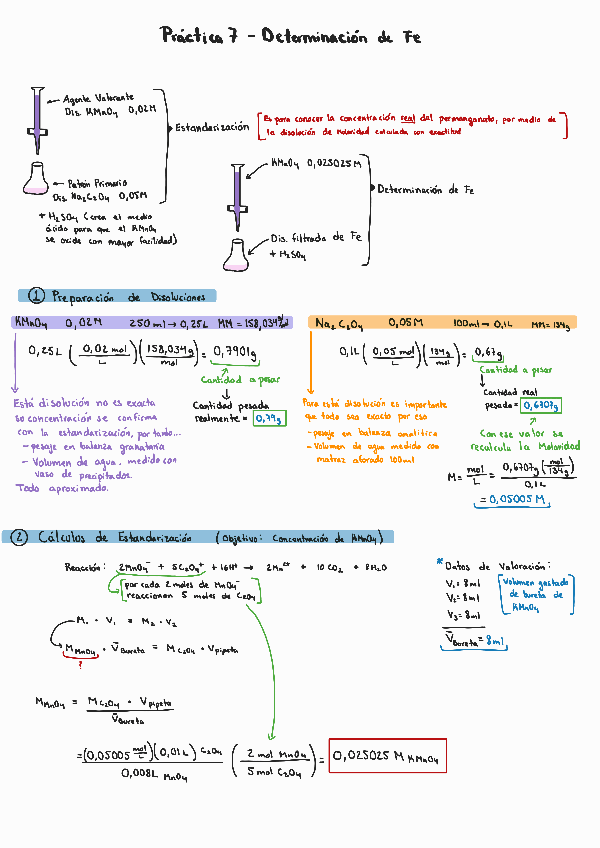 Práctica 7 - Determinación de Fe
Agente Valorante
Dis. KMnO4 0,02M
Estandarización
[Es para conocer la concentración real del permanganato, por medio de
la disolución de Molaridad calculada con exactitud]
Patrón Primario
Dis. Na2C2O4 0,05M
+ H2SO4 (crea el medio
ácido para que el KMnO4
se oxide con mayor facilidad)
KMnO4 0,025025M
Determinación de Fe
Dis. filtrada de Fe
+ H2SO4
① Preparación de Disoluciones
KMnO4 0,02M 250ml → 0,25L MM = 158,034g/mol
0,25L (0,02 mol / L) (158,034g / mol) = 0,7901g
Cantidad a pesar
Cantidad pesada
realmente = 0,79g
Esta disolución no es exacta
su concentración se confirma
con la estandarización, por tanto...
- pesaje en balanza granataria
- Volumen de agua, medido con
vaso de precipitados.
Todo aproximado.
Na2C2O4 0,05M 100ml → 0,1L MM = 134g
0,1L (0,05 mol / L) (134g / mol) = 0,67g
Cantidad a pesar
Cantidad real
pesada = 0,6707g
Para esta disolución es importante
que todo sea exacto por eso
- pesaje en balanza analítica
- Volumen de agua medido con
matraz aforado 100ml
Con ese valor se
recalcula la Molaridad
M = mol / L = 0,6707g (mol / 134g) / 0,1L
= 0,05005 M
② Cálculos de Estandarización (Objetivo: Concentración de KMnO4)
Reacción: 2MnO4⁻ + 5C2O4⁺ + 16H⁺ → 2Mn²⁺ + 10 CO2 + 8H2O
[por cada 2 moles de MnO4⁻
reaccionan 5 moles de C2O4]
M1 · V1 = M2 · V2
M MnO4 · V̄ Bureta = M C2O4 · V pipeta
?
M MnO4 = M C2O4 · V pipeta / V̄ Bureta
= (0,05005 mol / L)(0,01L) C2O4 / 0,008L MnO4 (2 mol MnO4 / 5 mol C2O4) = 0,025025 M KMnO4
* Datos de Valoración:
V1 = 8ml
V2 = 8ml
V3 = 8ml
V̄ Bureta = 8ml
[Volumen gastado
de bureta de
KMnO4]